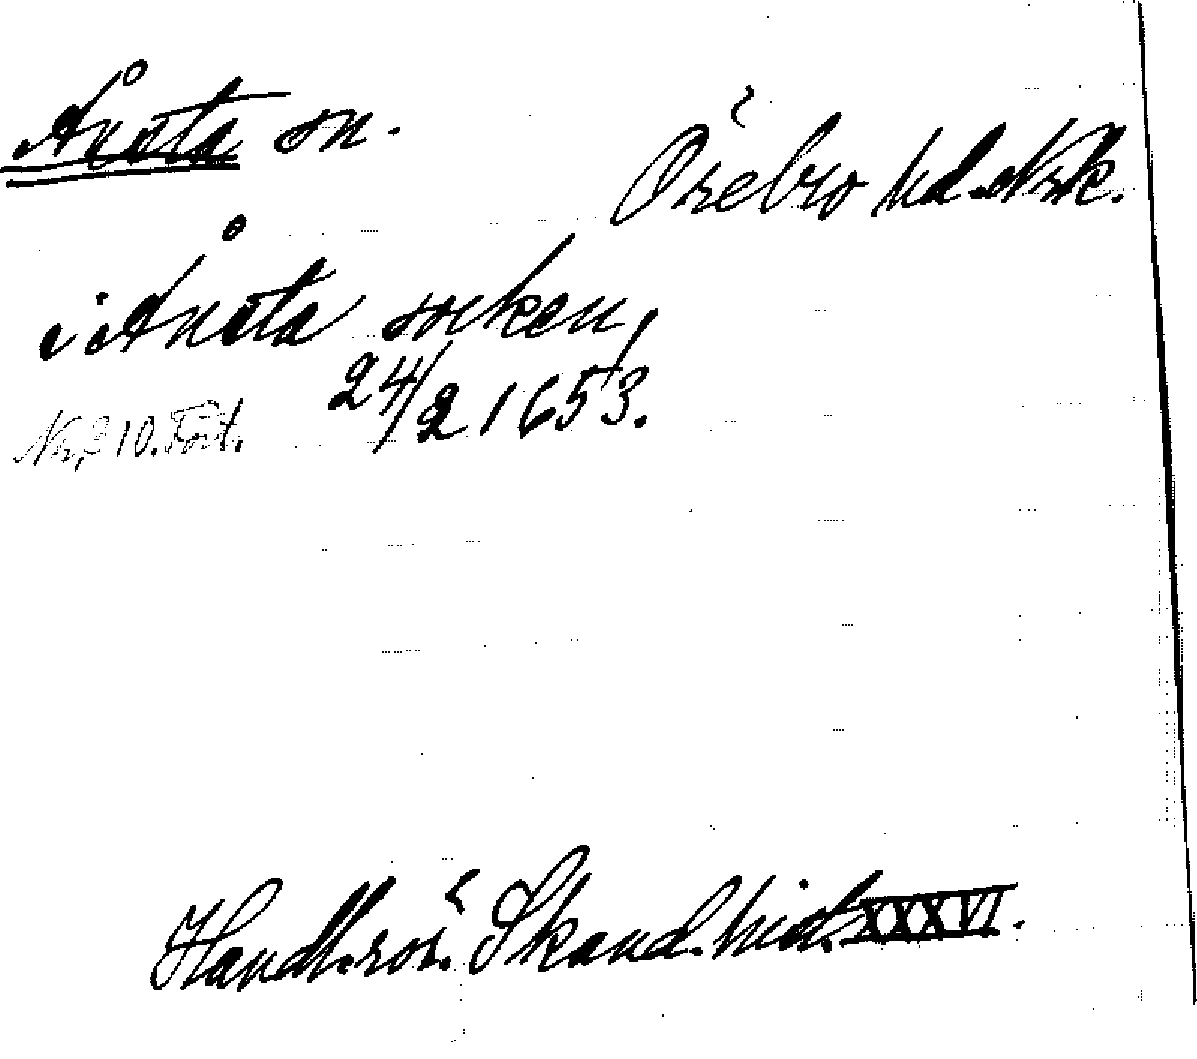 Ånsta sn.
Örebro hd. Nrk.
i Ånsta socken,
24/2 1653.
Nr, 210. Fört.
Handl. rör. Skand. hist. XXXVI.